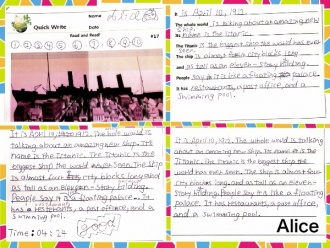 Name Alice
Quick Write
Date
Read and Read!
1 2 3 4 5 6 7 8 9 10
#17
It is April 10, 1912. The whole world is
talking about an amazing new ship. It's
name is the Titanic. The Titanic is the
biggest ship the world has ever seen. The ship
is almost four city blocks long and
as tall as an eleven - story building.
People say it is a floating palace. It
has restaurants, a post office, and a
swimming pool.
Time: 04:24
Good
It is April 10, 1912.
The whole world is talking about an amazing new
ship.
name is the Titanic.
The Titanic is the biggest ship the world has ever
seen.
The ship is almost four city blocks long
and as tall as an eleven - Story building.
People say it is like a floating palace.
It has restaurants, a post office, and a
Swimming pool.
It is April 10, 1912. The whole world is talking
about an amazing new ship. Its name is the
Titanic. The Titanic is the biggest ship the
world has ever seen. The ship is almost four
city blocks long and as tall as an eleven -
Story building. People say it is like a floating
palace. It has restaurants, a post office,
and a swimming pool.
Alice